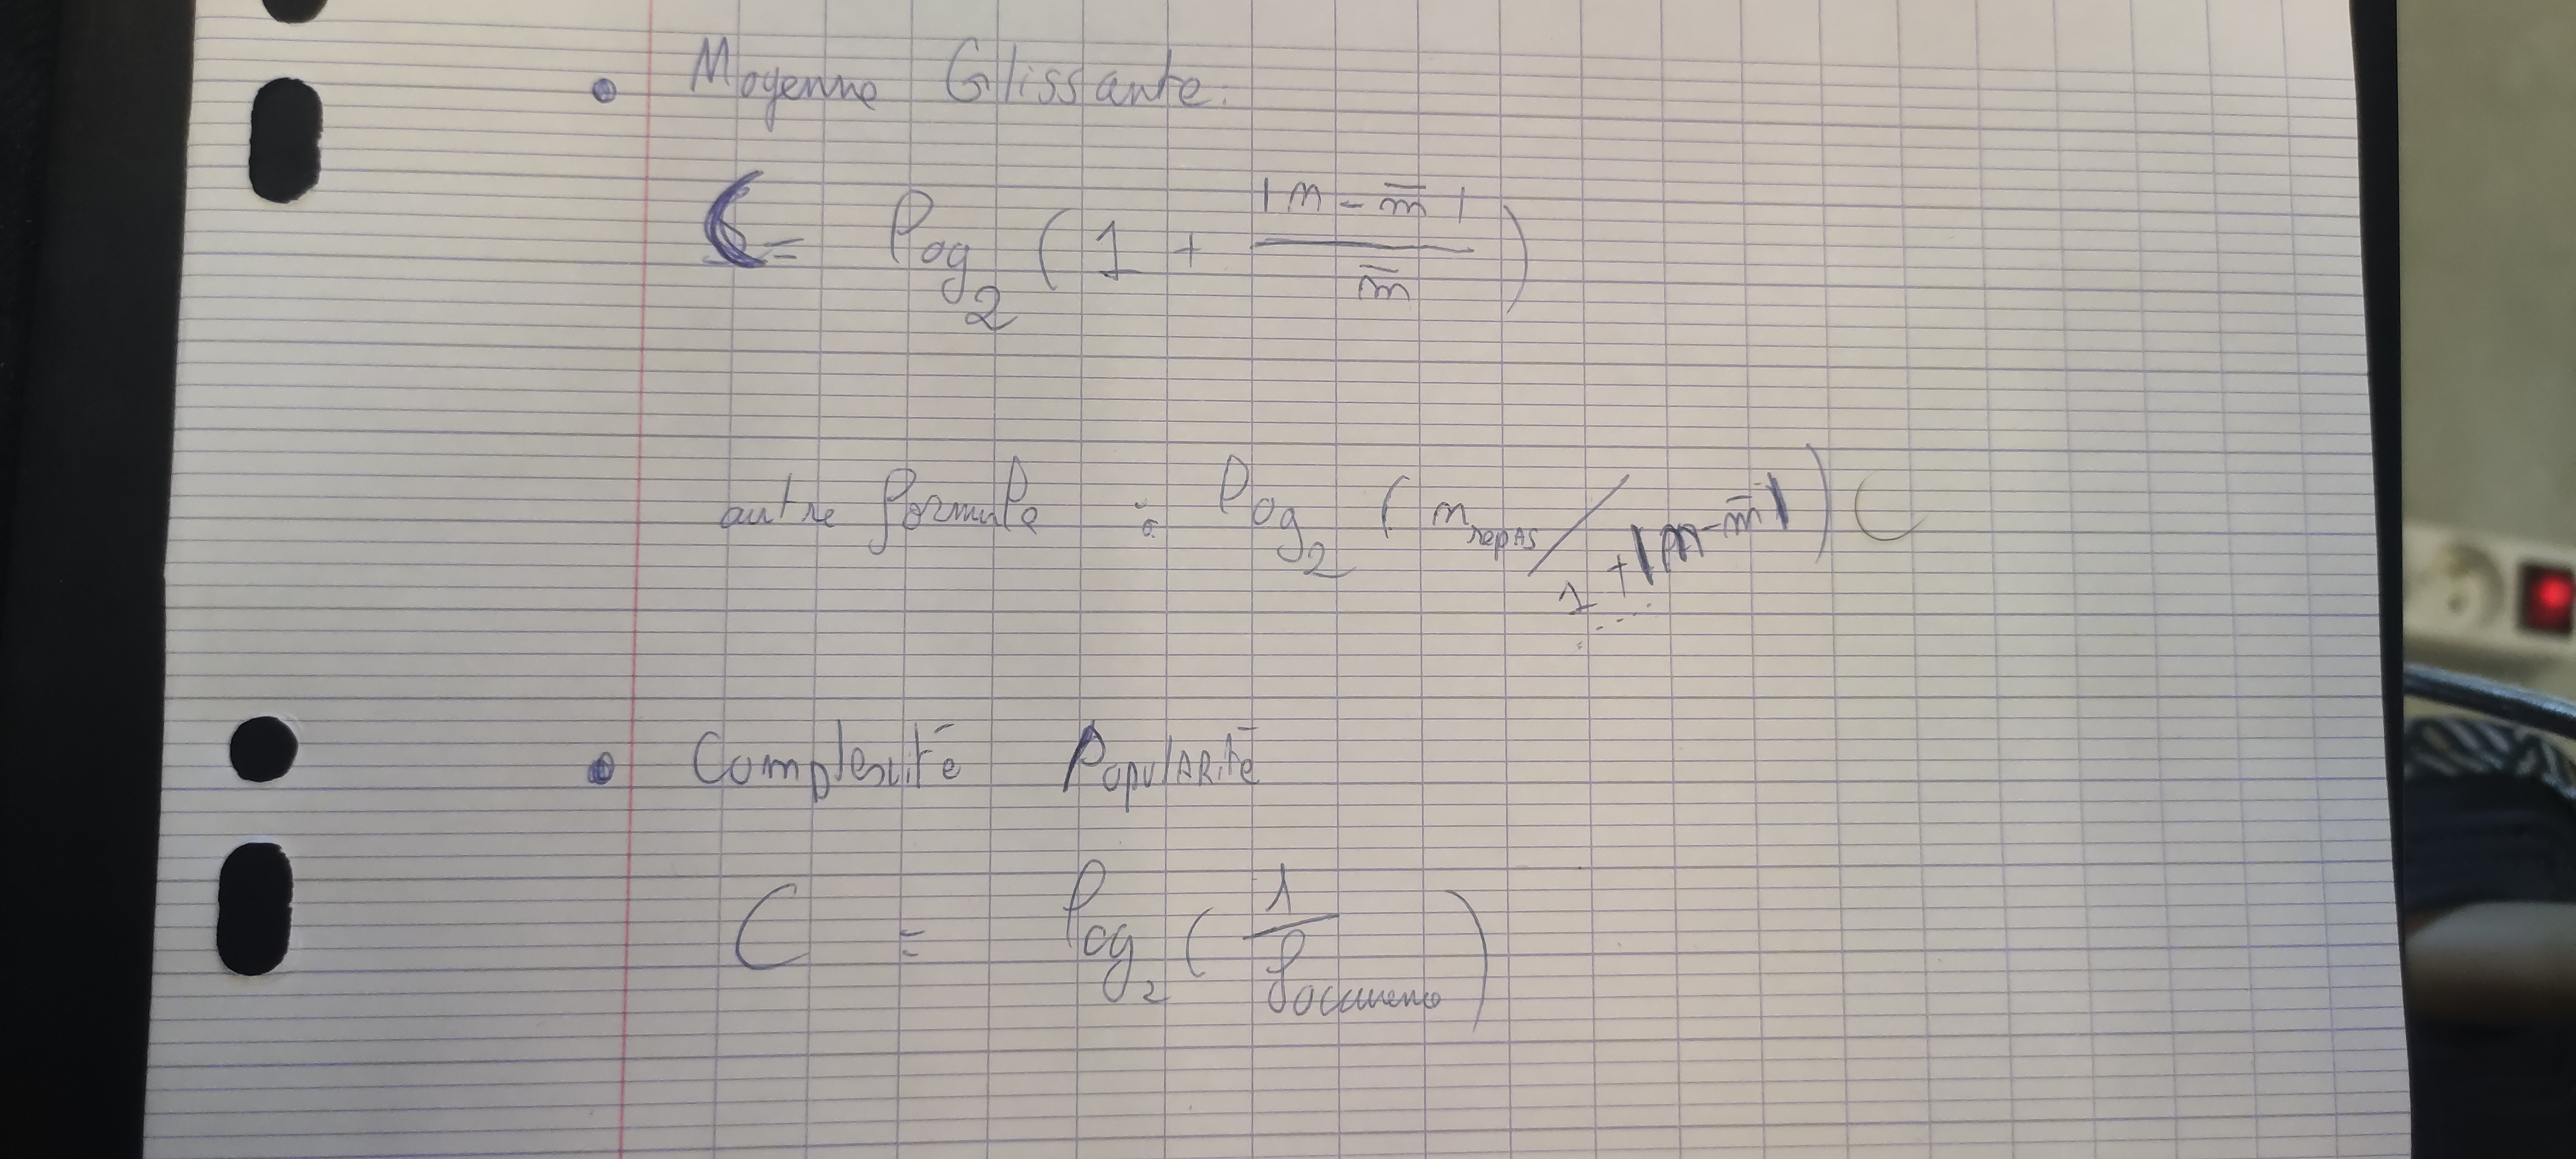 • Moyenne Glissante:
C = log₂ ( 1 + |m - m̄| / m̄ )
autre formule : log₂ ( m repas / |m - m̄| + 1 )
• Complexité Popularité
C = log₂ ( 1 / f documents )